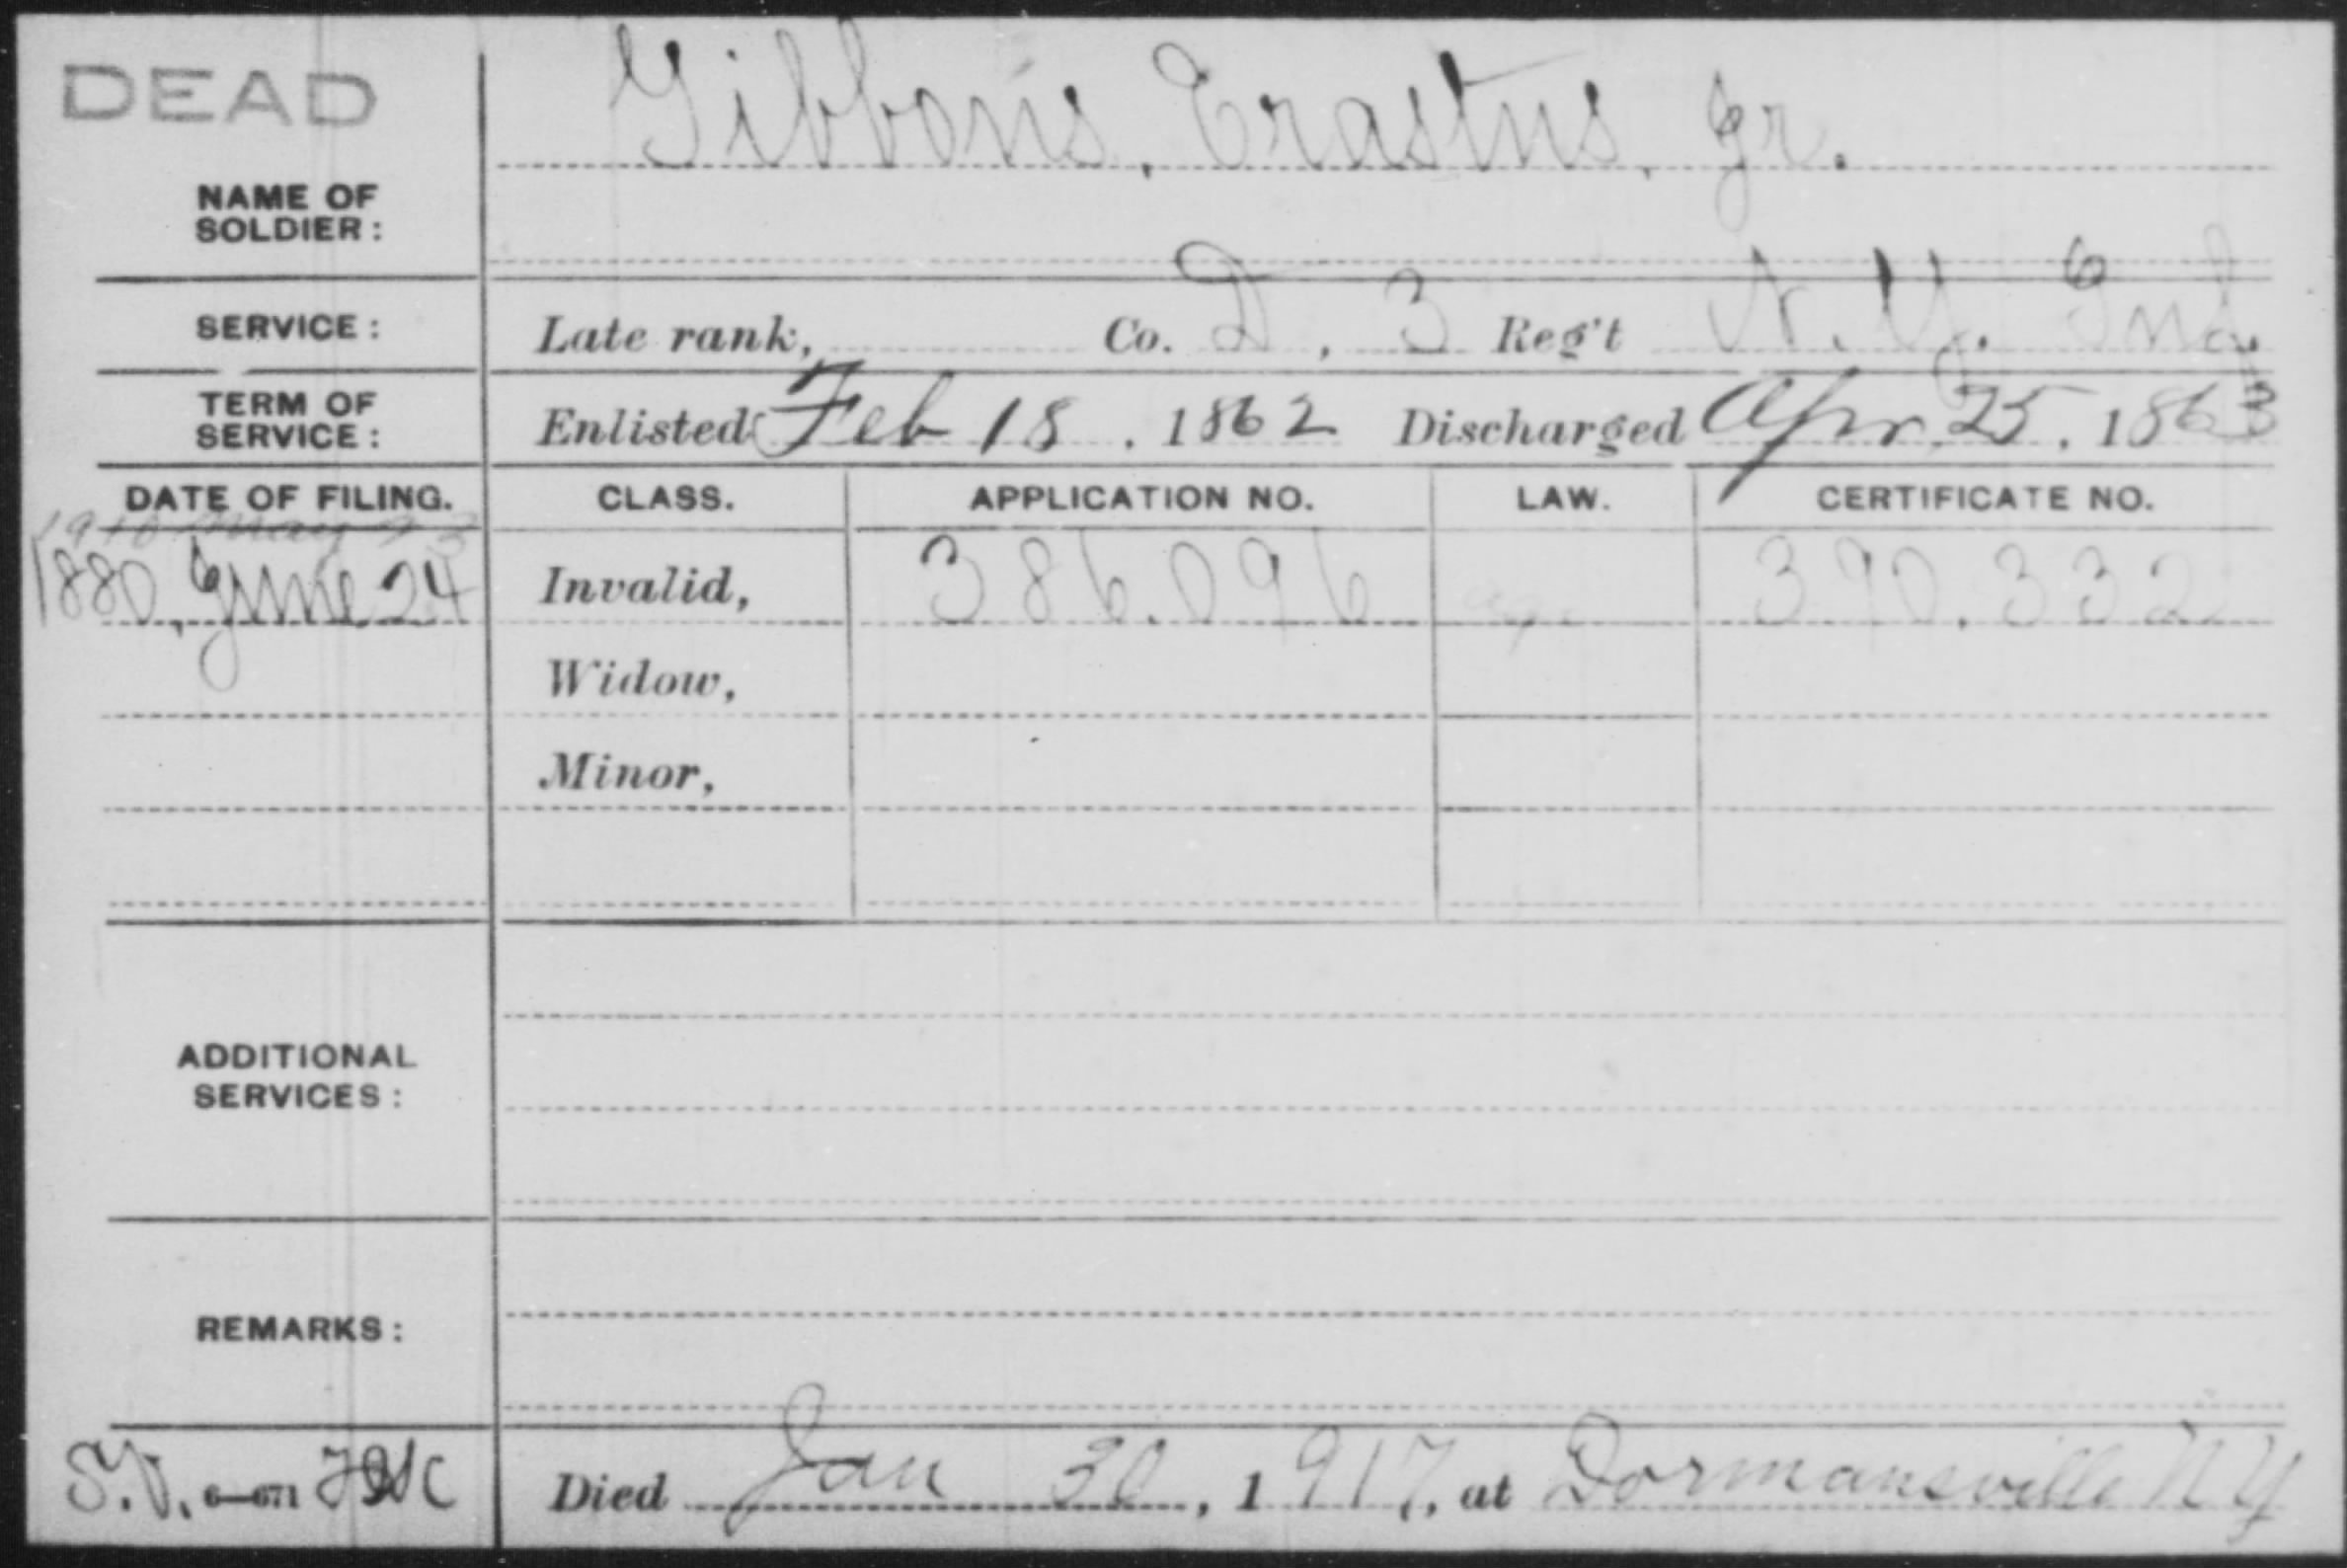 DEAD
Gibbons, Erastus, Jr.
NAME OF
SOLDIER:
SERVICE: Late rank, Co. D, 3 Reg't N.Y. Inf.
TERM OF
SERVICE: Enlisted Feb 18, 1862 Discharged Apr 25, 1863
DATE OF FILING. CLASS. APPLICATION NO. LAW. CERTIFICATE NO.
1910 May 23
1880, June 24 Invalid, 386.096 390.332
Widow,
Minor,
ADDITIONAL
SERVICES:
REMARKS:
S.V. 6-671 Died Jan 30, 1917, at Dormansville NY